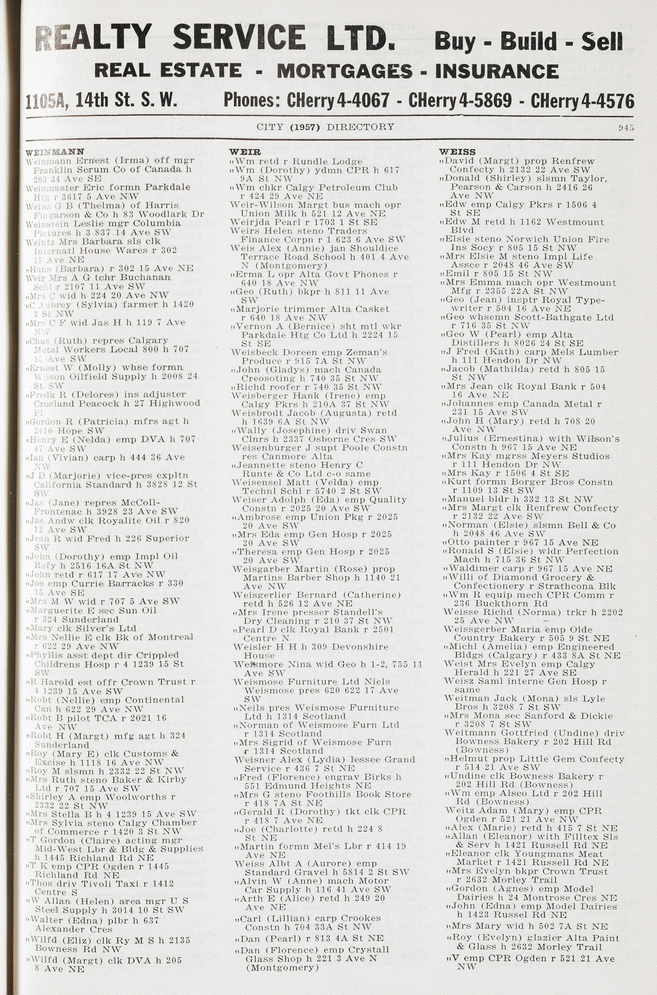 REALTY SERVICE LTD. Buy - Build - Sell
REAL ESTATE - MORTGAGES - INSURANCE
1105A, 14th St. S. W. Phones: CHerry 4-4067 - CHerry 4-5869 - CHerry 4-4576
CITY (1957) DIRECTORY 945
WEINMANN
Weinmann Ernest (Irma) off mgr
Franklin Serum Co of Canada h
203 34 Ave SE
Weinmaster Eric formn Parkdale
Htg r 3617 5 Ave NW
Weins G B (Thelma) of Harris
Fingarson & Co h 83 Woodlark Dr
Weinstein Leslie mgr Columbia
Pictures h 3 837 14 Ave SW
Weintz Mrs Barbara sls clk
Internatl House Wares r 302
15 Ave NE
„Hans (Barbara) r 302 15 Ave NE
Weir Mrs A G tchr Buchanan
Schl r 2107 11 Ave SW
„Mrs C wid h 224 20 Ave NW
„C Aubrey (Sylvia) farmer h 1420
3 St NW
„Mrs C F wid Jas H h 119 7 Ave
NW
„Chas (Ruth) repres Calgary
Metal Workers Local 800 h 707
Ave SW
„Ernest W (Molly) whse formn
Wilson Oilfield Supply h 2008 24
St SW
„Fredk R (Delores) ins adjuster
Crosland Peacock h 27 Highwood
Pl
„Gordon R (Patricia) mfrs agt h
2410 Hope SW
„Henry E (Nelda) emp DVA h 707
47 Ave SW
„Ian (Vivian) carp h 444 36 Ave
NW
„J D (Marjorie) vice-pres expltn
California Standard h 3828 12 St
SW
„Jas (Jane) repres McColl-
Frontenac h 3928 23 Ave SW
„Jas Andw clk Royalite Oil r 820
12 Ave SW
„Jean R wid Fred h 226 Superior
SW
„John (Dorothy) emp Impl Oil
Refy h 2516 16A St NW
„John retd r 617 17 Ave NW
„Jos emp Currie Barracks r 330
15 Ave SE
„Mrs M W wid r 707 5 Ave SW
„Marguerite E sec Sun Oil
r 324 Sunderland
„Mary clk Silver's Ltd
„Mrs Nellie E clk Bk of Montreal
r 622 29 Ave NW
„Phyllis asst dept dir Crippled
Childrens Hosp r 4 1239 15 St
SW
„R Harold est offr Crown Trust r
4 1239 15 Ave SW
„Robt (Nellie) emp Continental
Can h 622 29 Ave NW
„Robt B pilot TCA r 2021 16
Ave NW
„Robt H (Margt) mfg agt h 324
Sunderland
„Roy (Mary E) clk Customs &
Excise h 1118 16 Ave NW
„Roy M slsmn h 2332 22 St NW
„Mrs Ruth steno Baker & Kirby
Ltd r 707 15 Ave SW
„Shirley A emp Woolworths r
2332 22 St NW
„Mrs Stella B h 4 1239 15 Ave SW
„Mrs Sylvia steno Calgary Chamber
of Commerce r 1420 3 St NW
„T Gordon (Claire) acting mgr
Mid-West Lbr & Bldg & Supplies
h 1445 Richland Rd NE
„T K emp CPR Ogden r 1445
Richland Rd NE
„Thos driv Tivoli Taxi r 1412
Centre S
„W Allan (Helen) area mgr U S
Steel Supply h 3014 10 St SW
„Walter (Edna) plbr h 637
Alexander Cres
„Wilfd (Eliz) clk Ry M S h 2135
Bowness Rd NW
„Wilfd (Margt) clk DVA h 205
8 Ave NE
WEIR
„Wm retd r Rundle Lodge
„Wm (Dorothy) ydmn CPR h 617
9A St NW
„Wm chkr Calgy Petroleum Club
r 424 29 Ave NE
Weir-Wilson Margt bus mach opr
Union Milk h 521 12 Ave NE
Weirjda Pearl r 1703 1 St SE
Weirs Helen steno Traders
Finance Corpn r 1 623 6 Ave SW
Weis Alex (Annie) jan Shouldice
Terrace Road School h 401 4 Ave
N (Montgomery)
„Erma L opr Alta Govt Phones r
640 18 Ave NW
„Geo (Ruth) bkpr h 811 11 Ave
SW
„Marjorie trimmer Alta Casket
r 640 18 Ave NW
„Vernon A (Bernice) sht mtl wkr
Parkdale Htg Co Ltd h 2224 15
St SE
Weisbeck Doreen emp Zeman's
Produce r 915 7A St NW
„John (Gladys) mach Canada
Creosoting h 740 35 St NW
„Richd roofer r 740 35 St NW
Weisberger Hank (Irene) emp
Calgy Pkrs h 210A 37 St NW
Weisbrodt Jacob (Augusta) retd
h 1639 6A St NW
„Wally (Josephine) driv Swan
Clnrs h 2337 Osborne Cres SW
Weisenburger J supt Poole Constn
res Canmore Alta
„Jeannette steno Henry C
Runte & Co Ltd c-o same
Weisensel Matt (Velda) emp
Technl Schl r 5740 2 St SW
Weiser Adolph (Eda) emp Quality
Constn r 2025 20 Ave SW
„Ambrose emp Union Pkg r 2025
20 Ave SW
„Mrs Eda emp Gen Hosp r 2025
20 Ave SW
„Theresa emp Gen Hosp r 2025
20 Ave SW
Weisgarber Martin (Rose) prop
Martins Barber Shop h 1140 21
Ave NW
Weisgerlier Bernard (Catherine)
retd h 526 12 Ave NE
„Mrs Irene presser Standell's
Dry Cleaning r 210 37 St NW
„Pearl D clk Royal Bank r 2501
Centre N
Weisler H H h 309 Devonshire
House
Weismore Nina wid Geo h 1-2, 735 11
Ave SW
Weismose Furniture Ltd Niels
Weismose pres 620 622 17 Ave
SW
„Neils pres Weismose Furniture
Ltd h 1314 Scotland
„Norman of Weismose Furn Ltd
r 1314 Scotland
„Mrs Sigrid of Weismose Furn
r 1314 Scotland
Weisner Alex (Lydia) lessee Grand
Service r 436 7 St NE
„Fred (Florence) engrav Birks h
551 Edmund Heights NE
„Mrs G steno Foothills Book Store
r 418 7A St NE
„Gerald R (Dorothy) tkt clk CPR
r 418 7 Ave NE
„Joe (Charlotte) retd h 224 8
St NE
„Martin formn Mel's Lbr r 414 19
Ave NE
Weiss Albt A (Aurore) emp
Standard Gravel h 5814 2 St SW
„Alvin W (Anne) mach Motor
Car Supply h 116 41 Ave SW
„Arth E (Alice) retd h 249 20
Ave NE
„Carl (Lillian) carp Crookes
Constn h 704 33A St NW
„Dan (Pearl) r 813 4A St NE
„Dan (Florence) emp Crystall
Glass Shop h 221 3 Ave N
(Montgomery)
WEISS
„David (Margt) prop Renfrew
Confecty h 2132 22 Ave SW
„Donald (Shirley) slsmn Taylor,
Pearson & Carson h 2416 26
Ave NW
„Edw emp Calgy Pkrs r 1506 4
St SE
„Edw M retd h 1162 Westmount
Blvd
„Elsie steno Norwich Union Fire
Ins Socy r 805 15 St NW
„Mrs Elsie M steno Impl Life
Assce r 2048 46 Ave SW
„Emil r 805 15 St NW
„Mrs Emma mach opr Westmount
Mfg r 2355 22A St NW
„Geo (Jean) insptr Royal Type-
writer r 504 16 Ave NE
„Geo whsemn Scott-Bathgate Ltd
r 716 35 St NW
„Geo W (Pearl) emp Alta
Distillers h 8026 24 St SE
„J Fred (Kath) carp Mels Lumber
h 111 Hendon Dr NW
„Jacob (Mathilda) retd h 805 15
St NW
„Mrs Jean clk Royal Bank r 504
16 Ave NE
„Johannes emp Canada Metal r
231 15 Ave SW
„John H (Mary) retd h 708 20
Ave NW
„Julius (Ernestina) with Wilson's
Constn h 967 15 Ave NE
„Mrs Kay mgrss Meyers Studios
r 111 Hendon Dr NW
„Mrs Kay r 1506 4 St SE
„Kurt formn Borger Bros Constn
r 1109 13 St SW
„Manuel bldr h 332 13 St NW
„Mrs Margt clk Renfrew Confecty
r 2132 22 Ave SW
„Norman (Elsie) slsmn Bell & Co
h 2048 46 Ave SW
„Otto painter r 967 15 Ave NE
„Ronald S (Elsie) wldr Perfection
Mach h 715 36 St NW
„Waldimer carp r 967 15 Ave NE
„Willi of Diamond Grocery &
Confectionery r Strathcona Blk
„Wm R equip mech CPR Comm r
236 Buckthorn Rd
Weisse Richd (Norma) trkr h 2202
25 Ave NW
Weissgerber Maria emp Olde
Country Bakery r 505 9 St NE
„Michl (Amelia) emp Engineered
Bldgs (Calgary) r 433 8A St NE
Weist Mrs Evelyn emp Calgy
Herald h 221 27 Ave SE
Weisz Saml interne Gen Hosp r
same
Weitman Jack (Mona) sls Lyle
Bros h 3208 7 St SW
„Mrs Mona sec Sanford & Dickie
r 3208 7 St SW
Weitmann Gottfried (Undine) driv
Bowness Bakery r 202 Hill Rd
(Bowness)
„Helmut prop Little Gem Confecty
r 514 21 Ave SW
„Undine clk Bowness Bakery r
202 Hill Rd (Bowness)
„Wm emp Alsco Ltd r 202 Hill
Rd (Bowness)
Weitz Adam (Mary) emp CPR
Ogden r 521 21 Ave NW
„Alex (Marie) retd h 415 7 St NE
„Allan (Eleanor) with Filltex Sls
& Serv h 1421 Russell Rd NE
„Eleanor clk Youngmans Meat
Market r 1421 Russell Rd NE
„Mrs Evelyn bkpr Crown Trust
r 2632 Morley Trail
„Gordon (Agnes) emp Model
Dairies h 24 Montrose Cres NE
„John (Edna) emp Model Dairies
h 1423 Russel Rd NE
„Mrs Mary wid h 502 7A St NE
„Roy (Evelyn) glazier Alta Paint
& Glass h 2632 Morley Trail
„V emp CPR Ogden r 521 21 Ave
NW